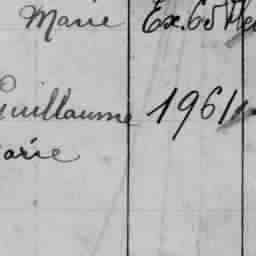 Marie Ex. 65
Guillaume 1961
arie